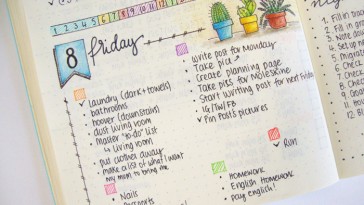 1 2 3 4 5 6 7 8 9 10
8 friday
✓ laundry (dark + towels)
• bathrooms
• hoover (downstairs)
• dust living room
• Master "to-do" list
✓ Living room
• put clothes away
• make a list of what I want
my mom to bring me
• Nails
Write post for Monday
• Take pics
• Create planning page
• Take pics for Moleskine
• Start writing post for next Friday
• IG/TW/FB
✓ Pin Post's pictures
✓ Run
• HOMEWORK
• English HOMEWORK
• pay english!
1. Fill in
2. Fill in
3. Note down
4. Set up
5. Migrate
6. Check
7. Check